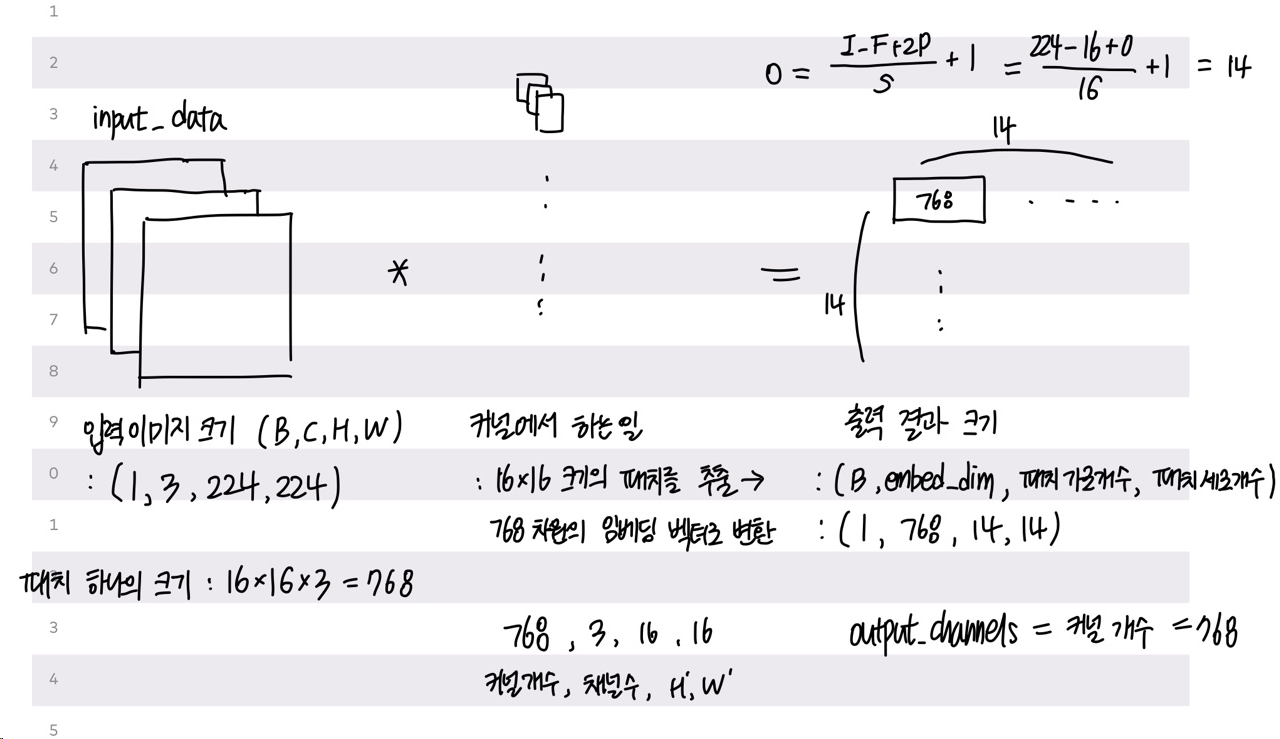 1
2
O = (I-F+2P)/S + 1 = (224-16+0)/16 + 1 = 14
3
input_data
14
4
5
768 . - - - .
6
* =
7
14
8
9
입력이미지 크기 (B, C, H, W)
커널에서 하는일
출력 결과 크기
0
: (1, 3, 224, 224)
: 16×16 크기의 패치를 추출 →
: (B, embed_dim, 패치가로개수, 패치세로개수)
1
768 차원의 임베딩 벡터로 변환
: (1, 768, 14, 14)
패치 하나의 크기 : 16×16×3 = 768
3
768, 3, 16, 16
output_channels = 커널 개수 = 768
4
커널개수, 채널수, H', W'
5